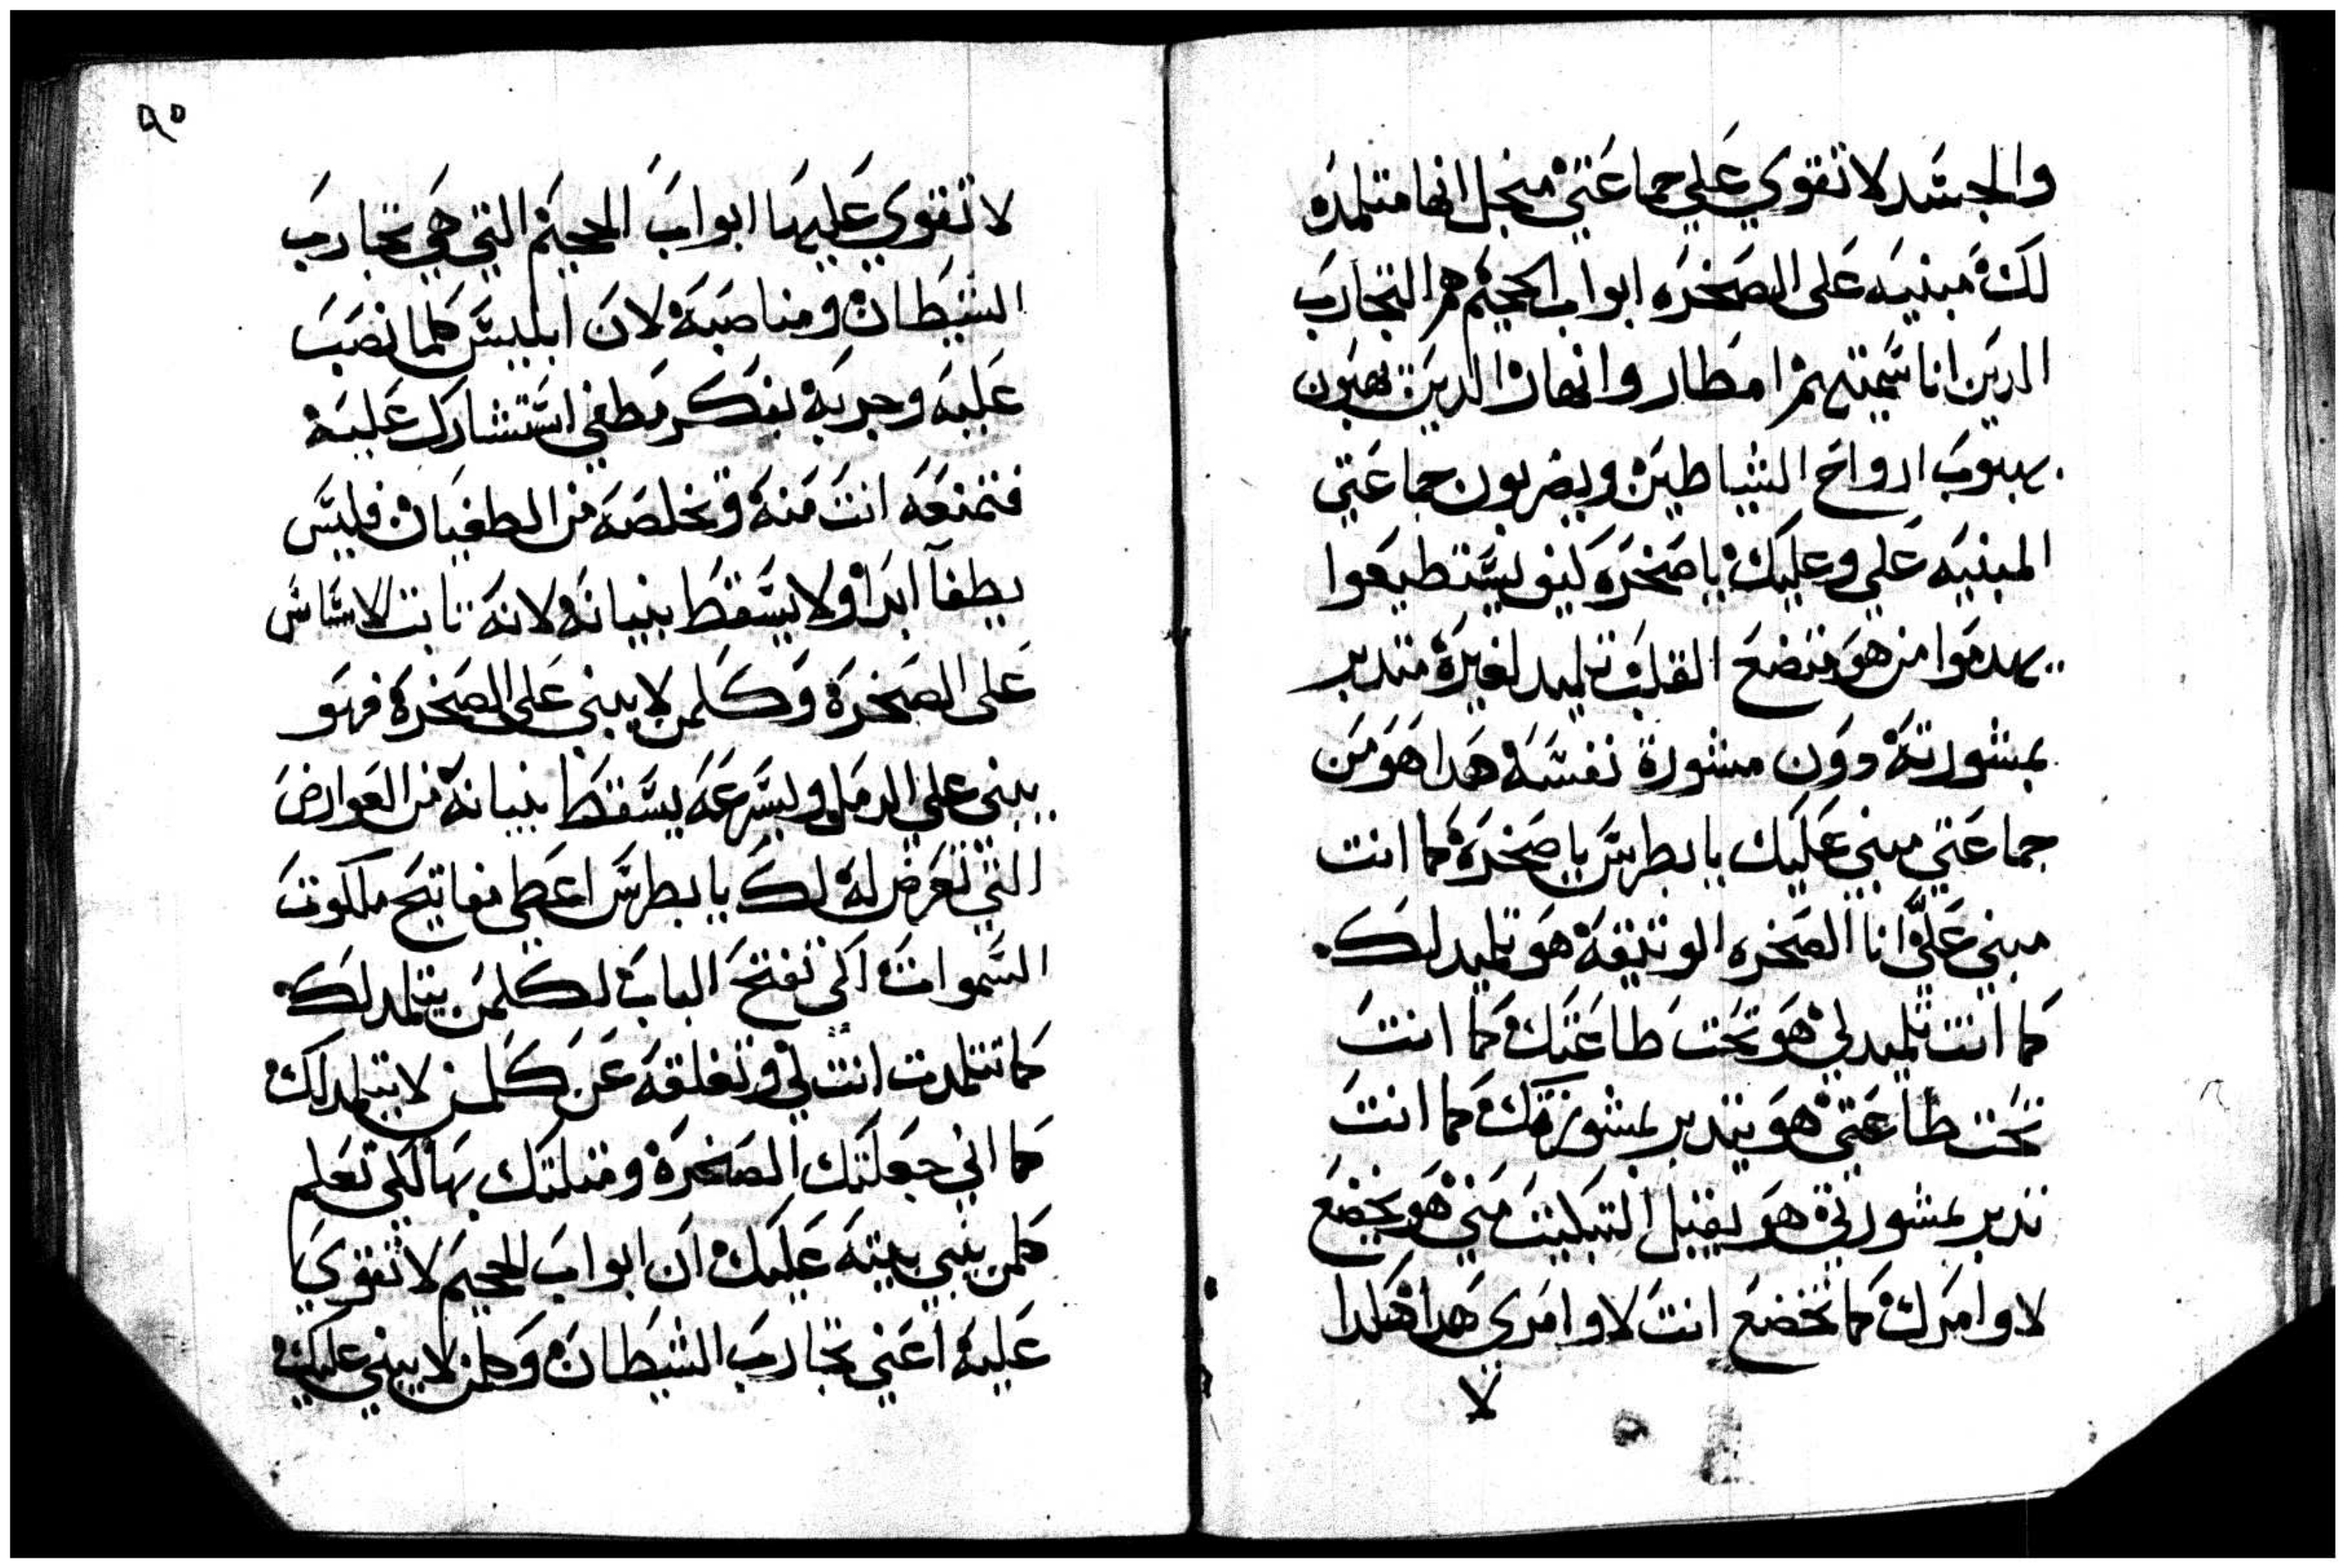 والجسد لا تقوي علي جماعتي منجل انها متلمده
لك مبنيه على الصخره ابواب الجحيم هم التجارب
الدين انا سميتهم امطار وانهار الدين يهبون
بهبوب ارواح الشياطين ويضربون جماعتي
المبنيه علي وعليك يا صخره كيف يستطيعوا
يهدموا من هو متضع القلب وتلميد لغيره متدبر
بمشورته دون مشورة نفسه هدا هو من
جماعتي مبني عليك يا بطرس يا صخرة كما انت
مبني عليّ انا الصخره الوتيقة هو تلميد لك
كما انت تلميد لي هو تحت طاعتك كما انت
تحت طاعتي هو يتدبر بمشورتك كما انت
تدبر بمشورتي هو يقبل التبكيت مني هو يخضع
لاوامرك كما تخضع انت لاوامري هدا هكدا
لا
٩٥
لا تقوي عليها ابواب الجحيم التي هي تجارب
الشيطان ومناصبه لان ابليس كلما نصب
عليه وجربه بفكر مطغي استشارك عليه
فتمنعه انت منه وتخلصه من الطغيان فليس
يطغا ابدا ولا يسقط بنيانه لانه تابت الاساس
على الصخرة وكلمن لا يبني على الصخرة فهو
يبني علي الرمل وبسرعه يسقط بنيانه من العوارض
التي تعرض له لك يا بطرس اعطي مفاتيح ملكوت
السموات لكي تفتح الباب لكلمن يتلمد لك
كما تتلمدت انت لي وتغلقه عن كلمن لا يتلمد لك
كما اني جعلتك الصخرة ومتلتك بها لكي تعلم
كلمن يبني بيته عليك ان ابواب الجحيم لا تقوي
عليه اعني تجارب الشيطان وكلمن لا يبني عليك